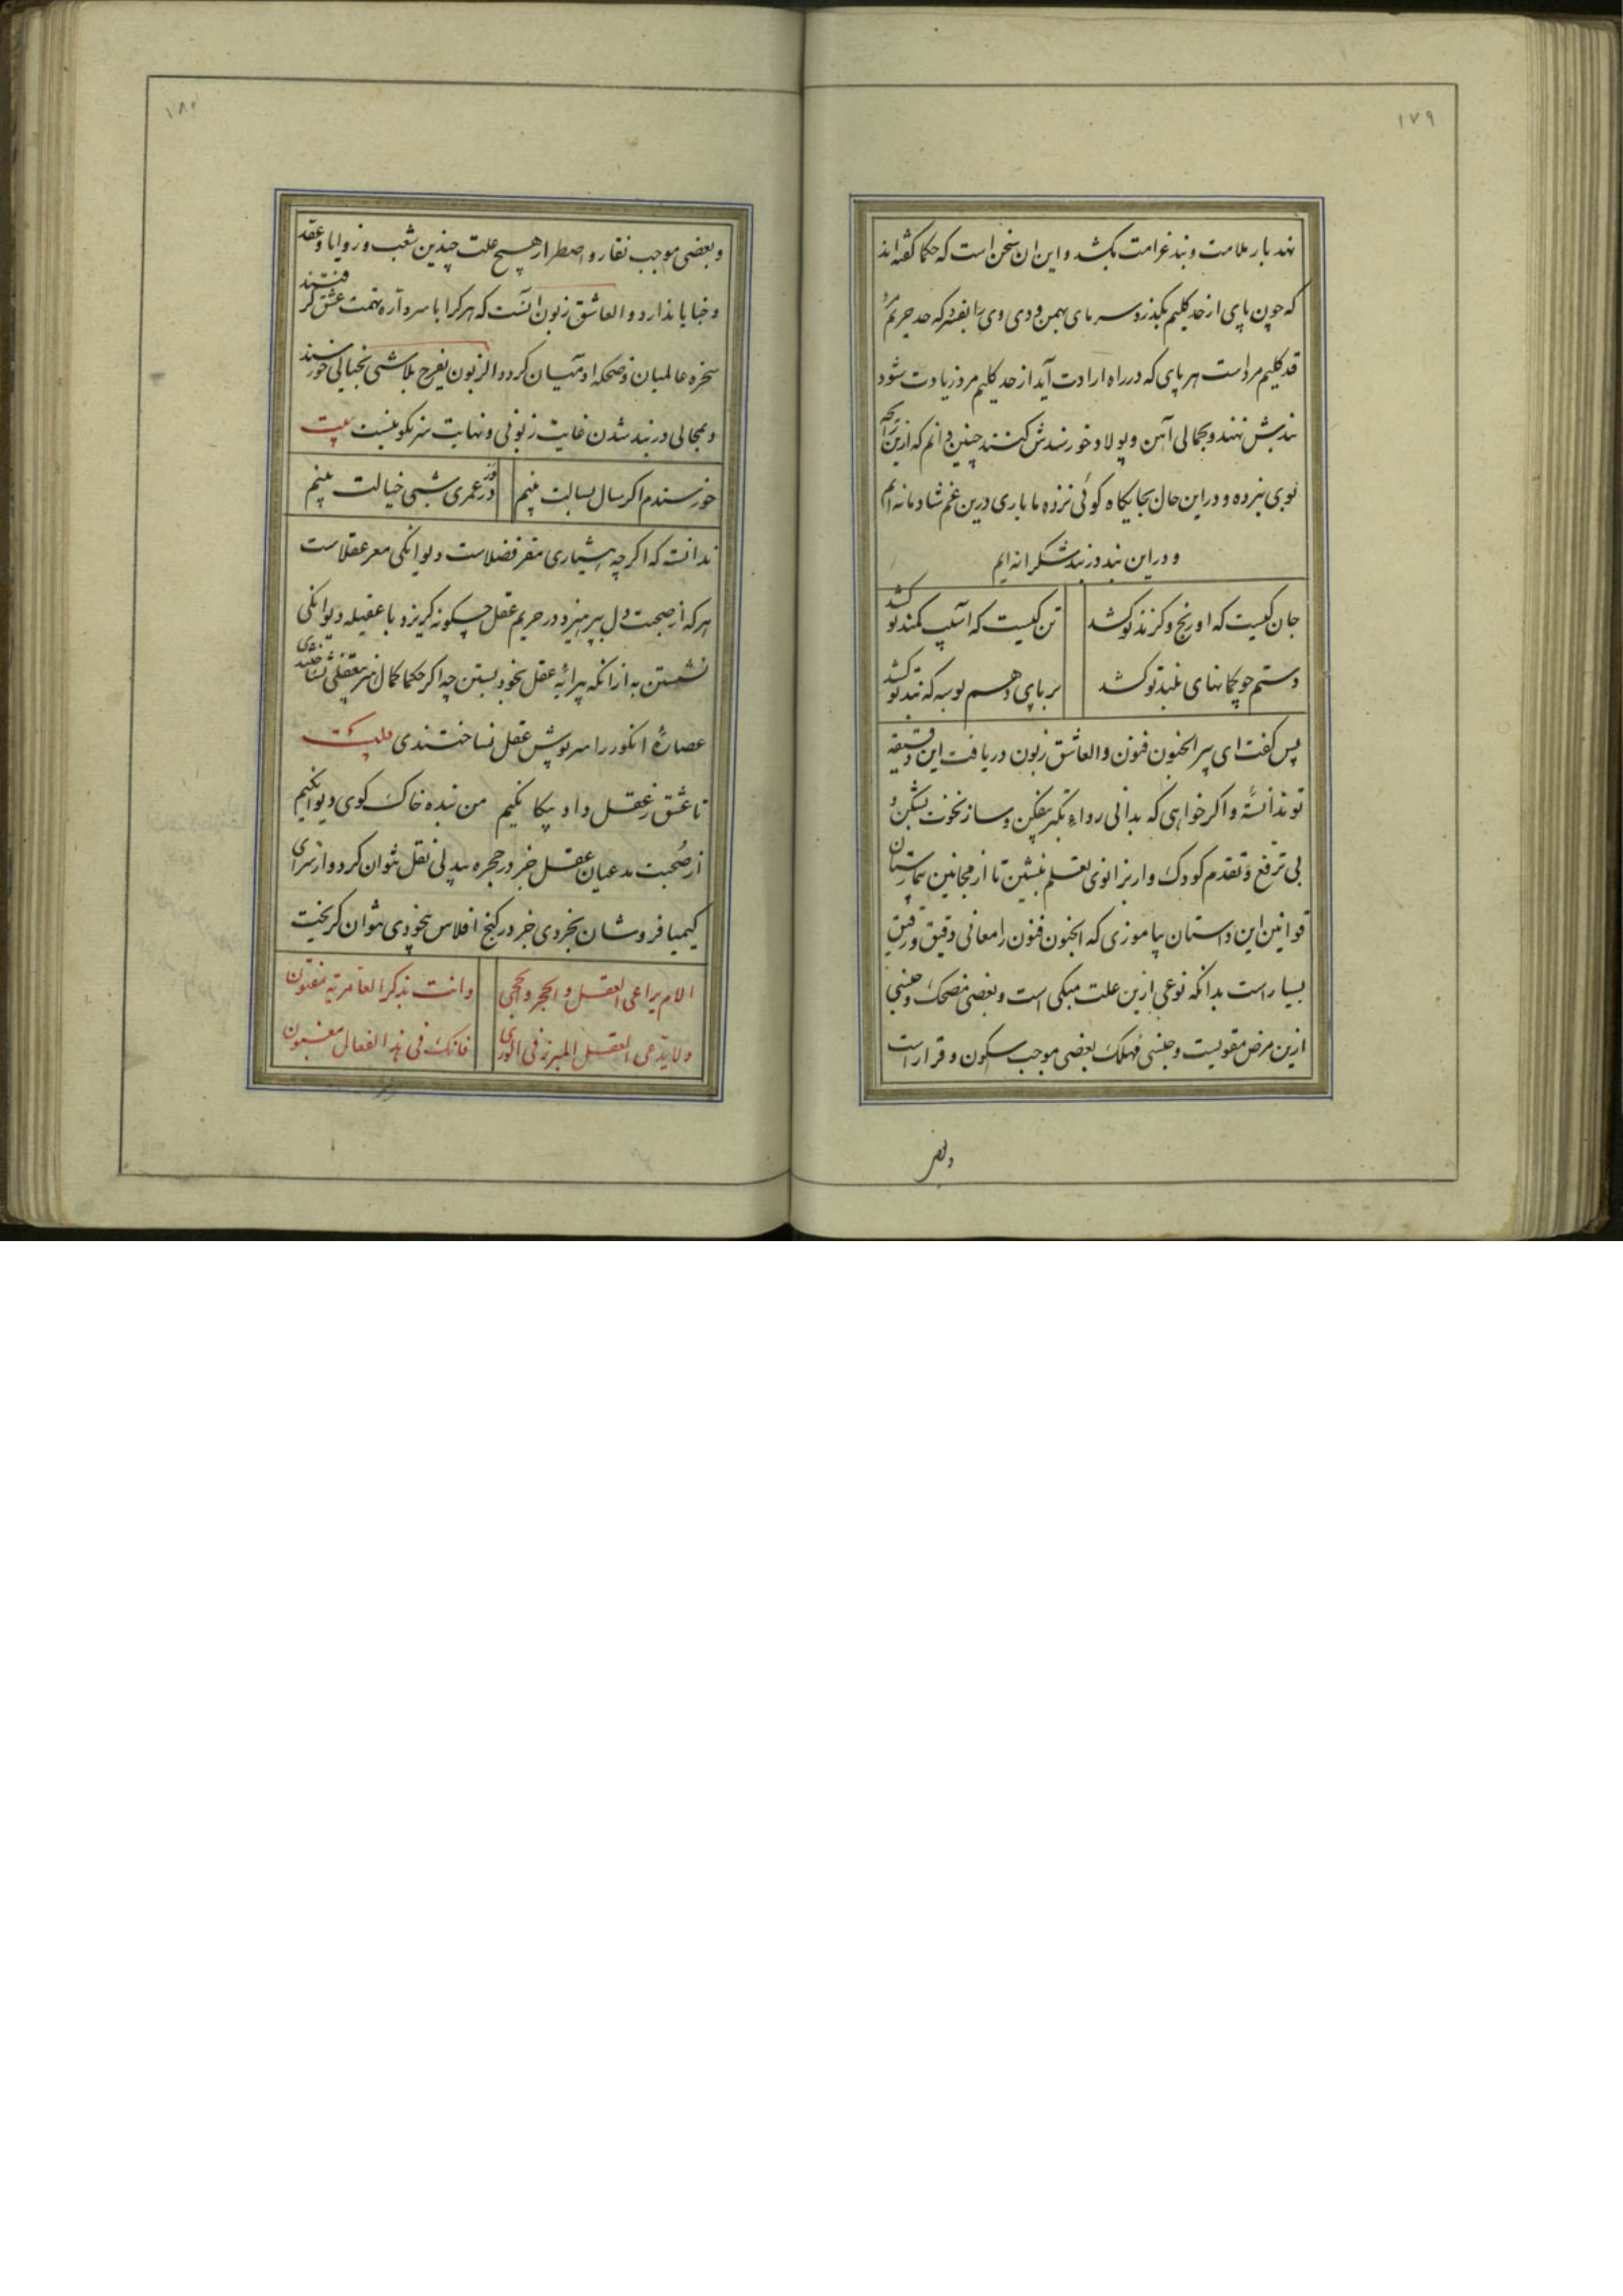 ۱۷۹
نهد بار ملامت و بند غرامت بکشد و این ان سخن است که حکما گفته‌اند
که چون پای از حد کلیم بگذرد سرمای بهمن و دی وی را بفسرد که حد حریم
قد کلیم مرد است هر پای که در راه ارادت آید از حد کلیم مرد زیادت شود
بندش نهند و بحمالی آهن و پولاد خورسندش کنند چنین دانم که ازین
بوی نبرده و در این حال بجایکاه کوئی نزده ما باری درین غم شادمانه ایم
و در این بند در بند شکرانه ایم
جان کیست که او رنج و کزند تو کشد
تن کیست که آسیب کمند تو کشد
دستم چو کمانهای بلند تو کشد
بر پای دهم بوسه که بند تو کشد
پس کفت ای پیر الجنون فنون والعاشق زبون دریافت این دقیقه
تو ندانستهٔ و اکر خواهی که بدانی رداء تکبر بیفکن و ساز نخوت بشکن و
بی ترفع و تقدم کودک وار بزانوی تعلم بنشین تا از مجانین بیمارستان
قوانین این داستان بیاموزی که الجنون فنون را معانی دقیق و رقیق
بسیار است بدانکه نوعی ازین علت مبکی است و بعضی مضحک و جنسی
ازین مرض مقویست و جنسی مهلک بعضی موجب سکون و قرار است
و بعضی
۱۸۰
و بعضی موجب نقار و اضطرار هیچ علت چندین شعب و زوایا و عقد
و خبایا ندارد و العاشق زبون آنست که هر کرا با سر و آره تهمت عشق کرفتند
سخره عالمیان و ضحکه آدمیان کردد الزبون یفرح بلاشئی بخیالی خورسند
و بمحالی در بند شدن غایت زبونی و نهایت سرنکونیست بیت
خورسندم اکر سال بسالت بینم
ور در عمری شبی خیالت بینم
ندانسته که اکرچه هشیاری مقر فضلاست دیوانکی مفر عقلاست
هر که از صحبت دل بپرهیزد در حریم عقل چکونه کریزد با عقیله دیوانکی
نشستن به از انکه پیرایه عقل بخود بستن چه اکر حکما کمال در بیعقلی نشناختندی
عصارهٔ انکور را سرپوش عقل نساختندی بیت
تا عشق ز عقل داد بیکانکیم من بنده خاک کوی دیوانکیم
از صحبت مدعیان عقل جز در حجره بیدلی نقل نتوان کرد و از سرای
کیمیا فروشان بخردی جز در کنج افلاس بیخودی نتوان کریخت
الام یراعی العقل و الحجر و الحجی
و انت بذکر العامریة مفتون
ولا یدعی العقل المبرز فی الوری
فانک فی هذا الفعال مغبون